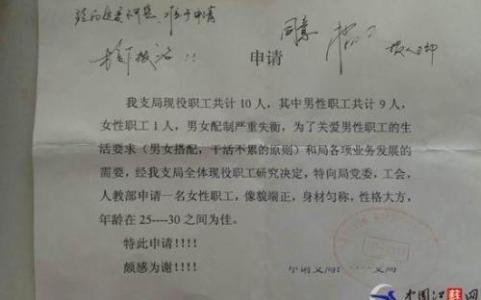 同意
申请
我支局现役职工共计10人，其中男性职工共计9人，
女性职工1人，男女配制严重失衡，为了关爱男性职工的生
活要求（男女搭配，干活不累的原则）和局各项业务发展的
需要，经我支局全体现役职工研究决定，特向局党委，工会，
人教部申请一名女性职工，像貌端正，身材匀称，性格大方，
年龄在25----30之间为佳。
特此申请！！！！
颇感为谢！！！！
中国江苏网